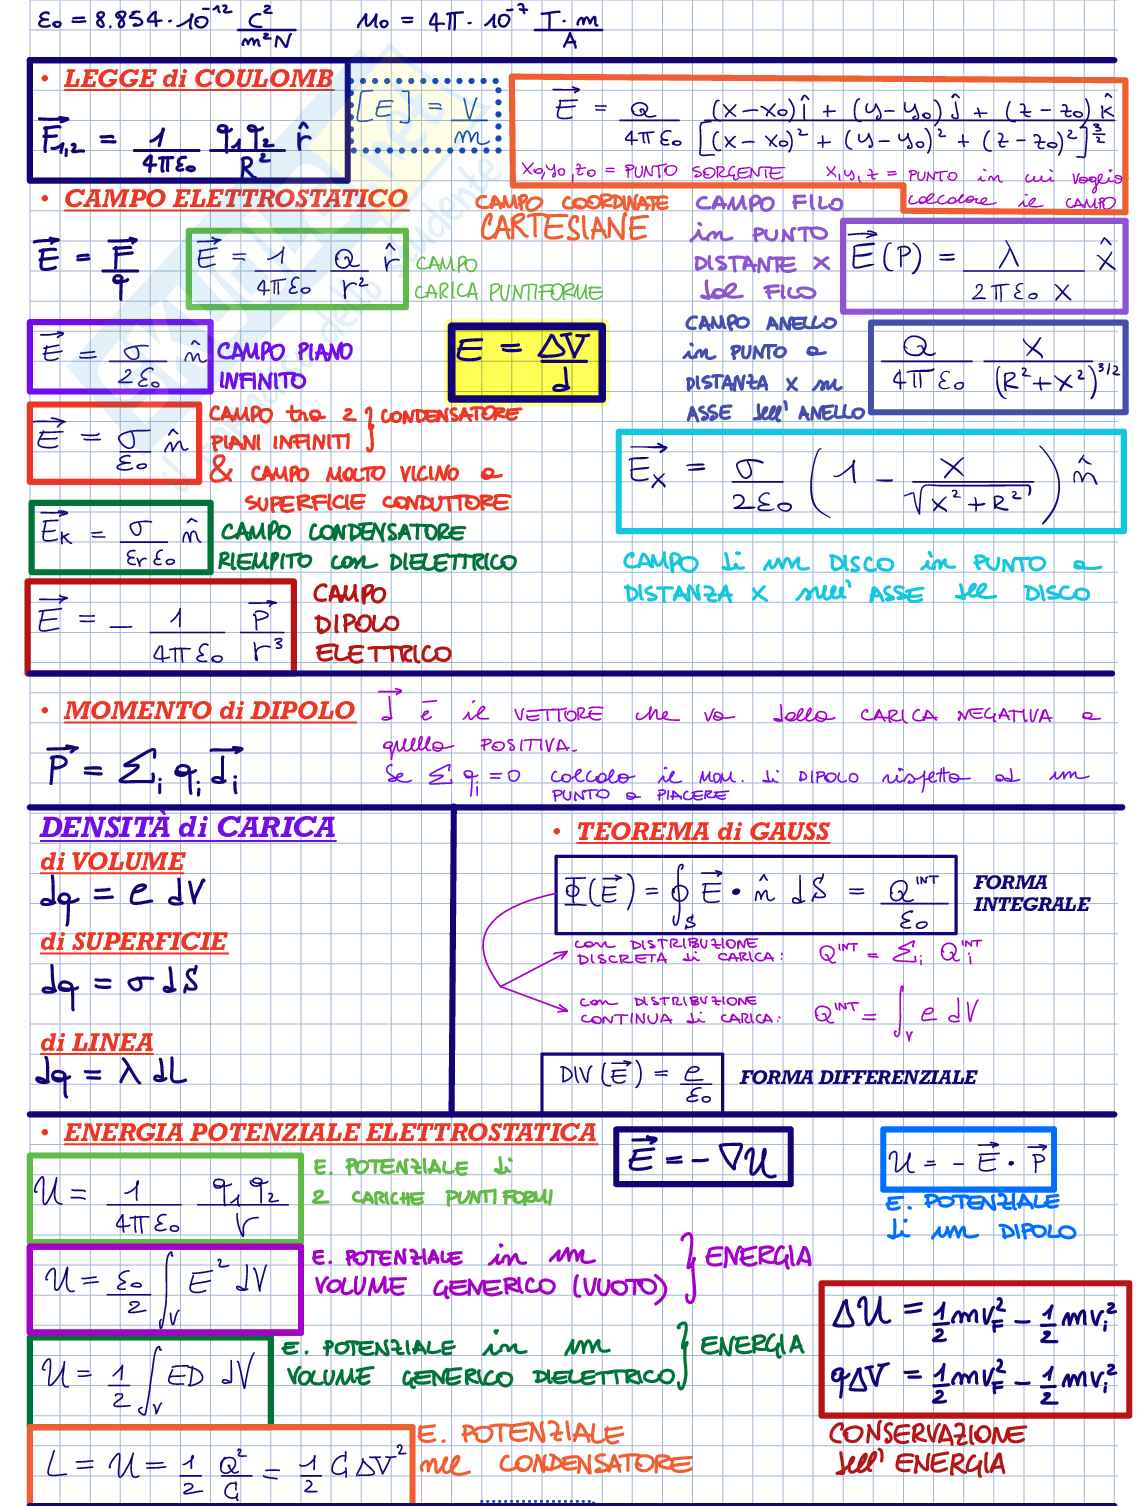 ε₀ = 8.854 · 10⁻¹² C²/m²N    μ₀ = 4π · 10⁻⁷ T·m/A
• LEGGE di COULOMB
F⃗₁,₂ = 1/4πε₀ q₁q₂/R² r̂
[E] = V/m
E⃗ = Q/4πε₀ (x-x₀)î + (y-y₀)ĵ + (z-z₀)k̂ / [(x-x₀)² + (y-y₀)² + (z-z₀)²]^3/2
x₀,y₀,z₀ = PUNTO SORGENTE    x,y,z = PUNTO in cui voglio
calcolare il CAMPO
CAMPO COORDINATE
CARTESIANE
• CAMPO ELETTROSTATICO
E⃗ = F⃗/q
E⃗ = 1/4πε₀ Q/r² r̂
CAMPO
CARICA PUNTIFORME
CAMPO FILO
in PUNTO
DISTANTE X
dal FILO
E⃗(P) = λ/2πε₀x x̂
E⃗ = σ/2ε₀ n̂
CAMPO PIANO
INFINITO
E = ΔV/d
CAMPO ANELLO
in PUNTO a
DISTANZA x su
ASSE dell'ANELLO
Q/4πε₀ x/(R²+x²)^3/2
E⃗ = σ/ε₀ n̂
CAMPO tra 2 } CONDENSATORE
PIANI INFINITI
& CAMPO MOLTO VICINO a
SUPERFICIE CONDUTTORE
E⃗x = σ/2ε₀ (1 - x/√(x²+R²)) n̂
CAMPO di un DISCO in PUNTO a
DISTANZA X sull'ASSE del DISCO
E⃗k = σ/εrε₀ n̂
CAMPO CONDENSATORE
RIEMPITO con DIELETTRICO
E⃗ = - 1/4πε₀ P⃗/r³
CAMPO
DIPOLO
ELETTRICO
• MOMENTO di DIPOLO
d⃗ è il VETTORE che va dalla CARICA NEGATIVA a
quella POSITIVA.
P⃗ = Σᵢ qᵢ d⃗ᵢ
Se Σ qᵢ = 0 calcolo il MOM. di DIPOLO rispetto ad un
PUNTO a PIACERE
DENSITÀ di CARICA
di VOLUME
dq = ρ dV
di SUPERFICIE
dq = σ dS
di LINEA
dq = λ dL
• TEOREMA di GAUSS
Φ(E⃗) = ∮s E⃗ • n̂ dS = Q^INT/ε₀
FORMA
INTEGRALE
con DISTRIBUZIONE
DISCRETA di CARICA:    Q^INT = Σᵢ Qᵢ^INT
con DISTRIBUZIONE
CONTINUA di CARICA:    Q^INT = ∫v ρ dV
DIV(E⃗) = ρ/ε₀
FORMA DIFFERENZIALE
• ENERGIA POTENZIALE ELETTROSTATICA
E⃗ = - ∇U
U = - E⃗ • P⃗
E. POTENZIALE
di un DIPOLO
U = 1/4πε₀ q₁q₂/r
E. POTENZIALE di
2 CARICHE PUNTIFORMI
U = ε₀/2 ∫v E² dV
E. POTENZIALE in un
VOLUME GENERICO (VUOTO) } ENERGIA
U = 1/2 ∫v ED dV
E. POTENZIALE in un
VOLUME GENERICO DIELETTRICO } ENERGIA
ΔU = 1/2 mv_F² - 1/2 mvᵢ²
qΔV = 1/2 mv_F² - 1/2 mvᵢ²
CONSERVAZIONE
dell'ENERGIA
L = U = 1/2 Q²/C = 1/2 C ΔV²
E. POTENZIALE
nel CONDENSATORE